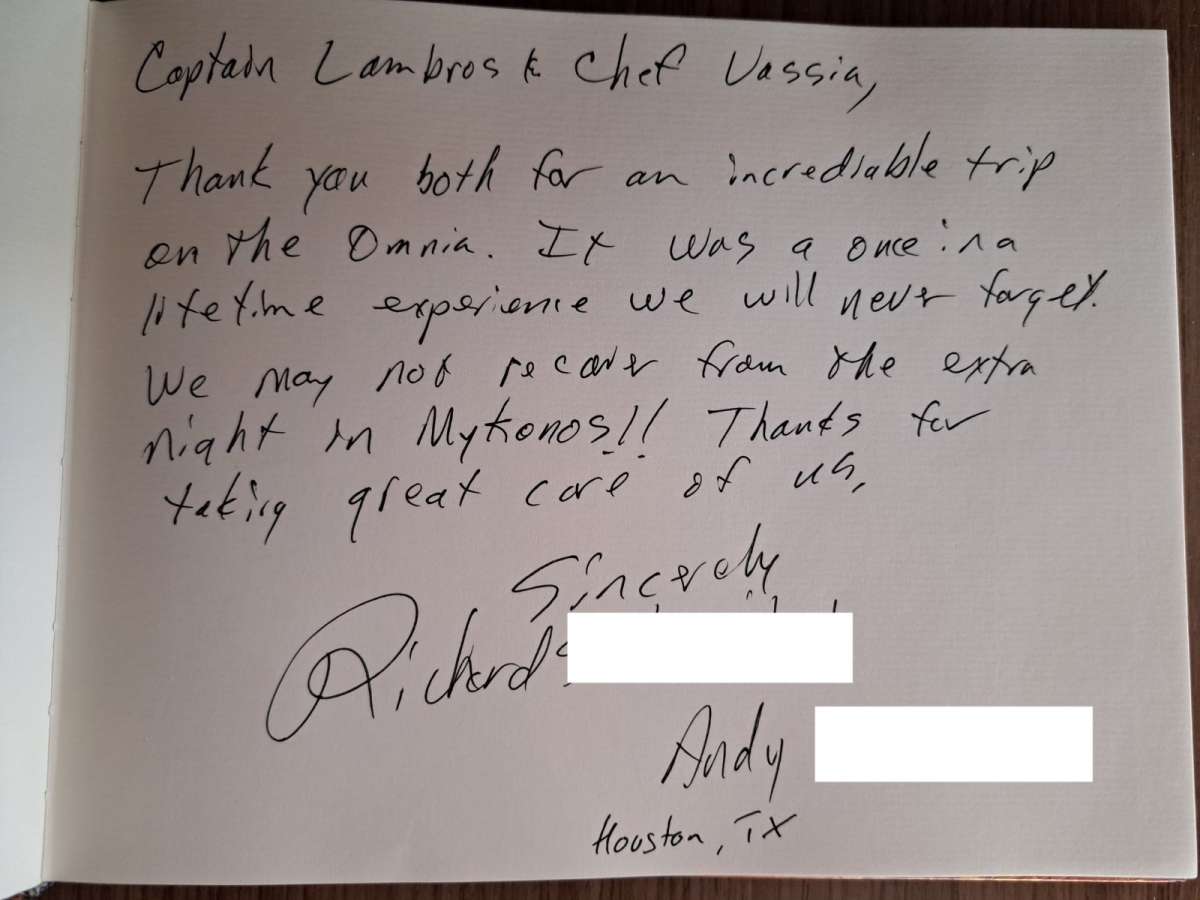 Captain Lambros & Chef Vassia,
Thank you both for an incrediable trip
on the Omnia. It was a once in a
lifetime experience we will never forget.
We may not recover from the extra
night in Mykonos!! Thanks for
taking great care of us,
Sincerely
Richard
Andy
Houston, TX